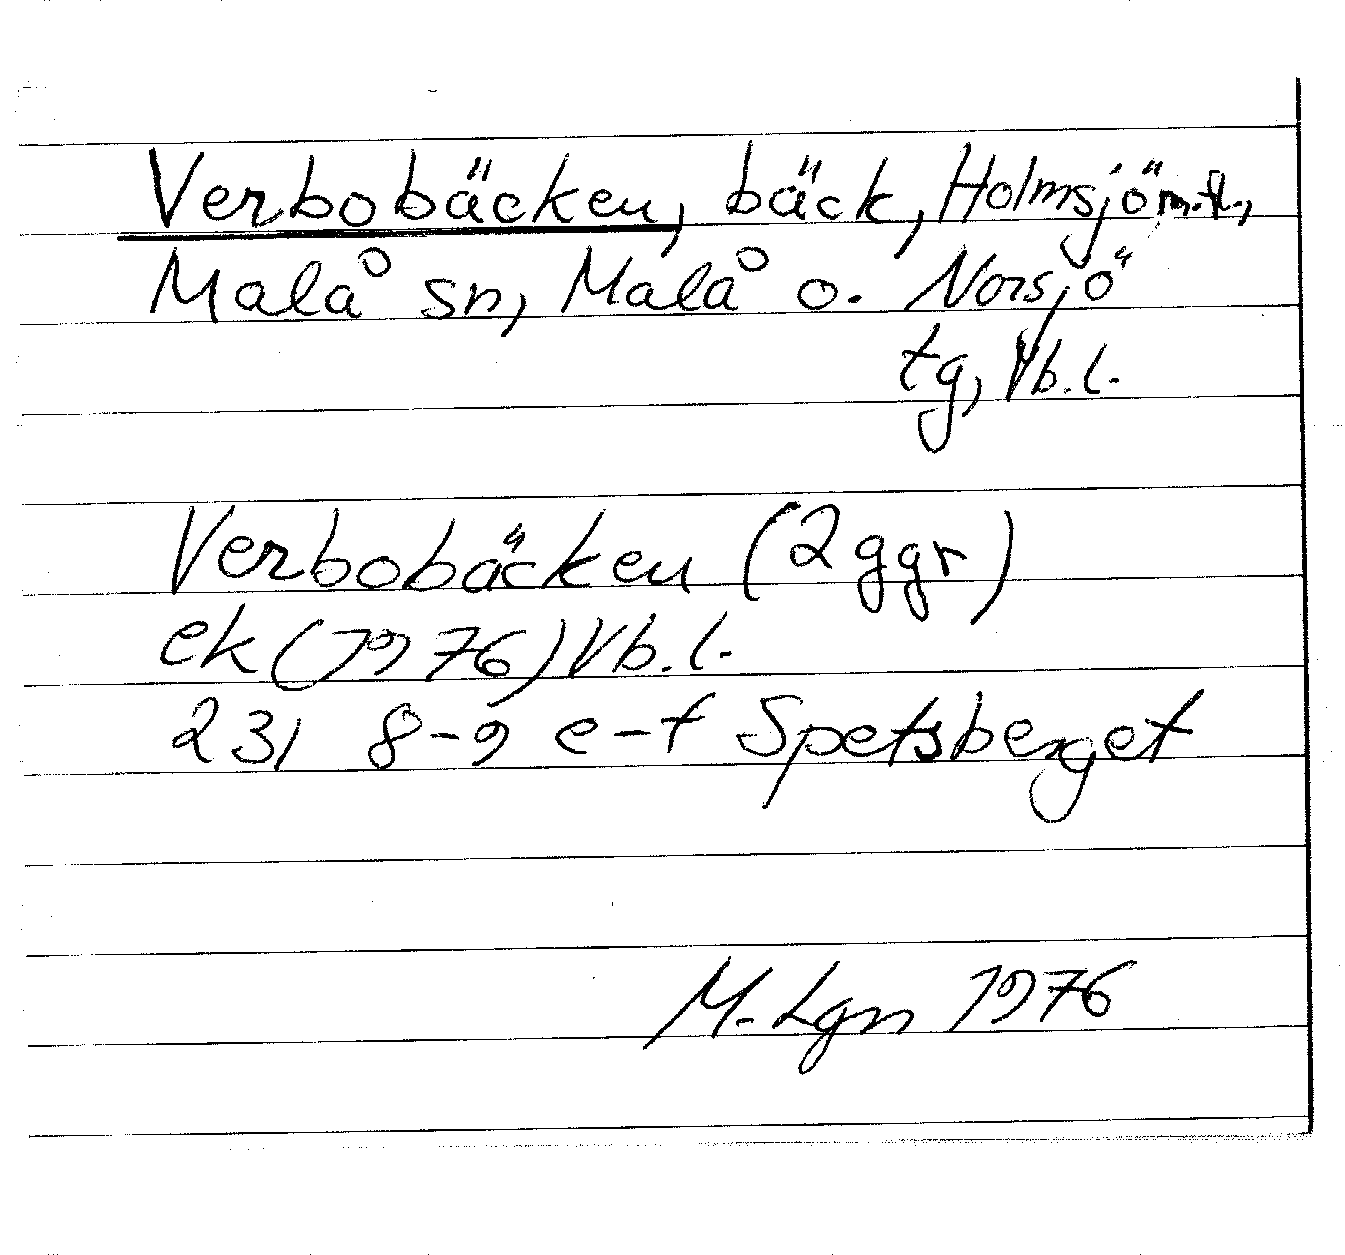 Verbobäcken, bäck, Holmsjö m.fl.,
Malå sn, Malå o. Norsjö
tg, Vb.l.
Verbobäcken (2 ggr)
ek (1976) Vb.l.
231 8-9 e-f Spetsberget
M. Lgn 1976